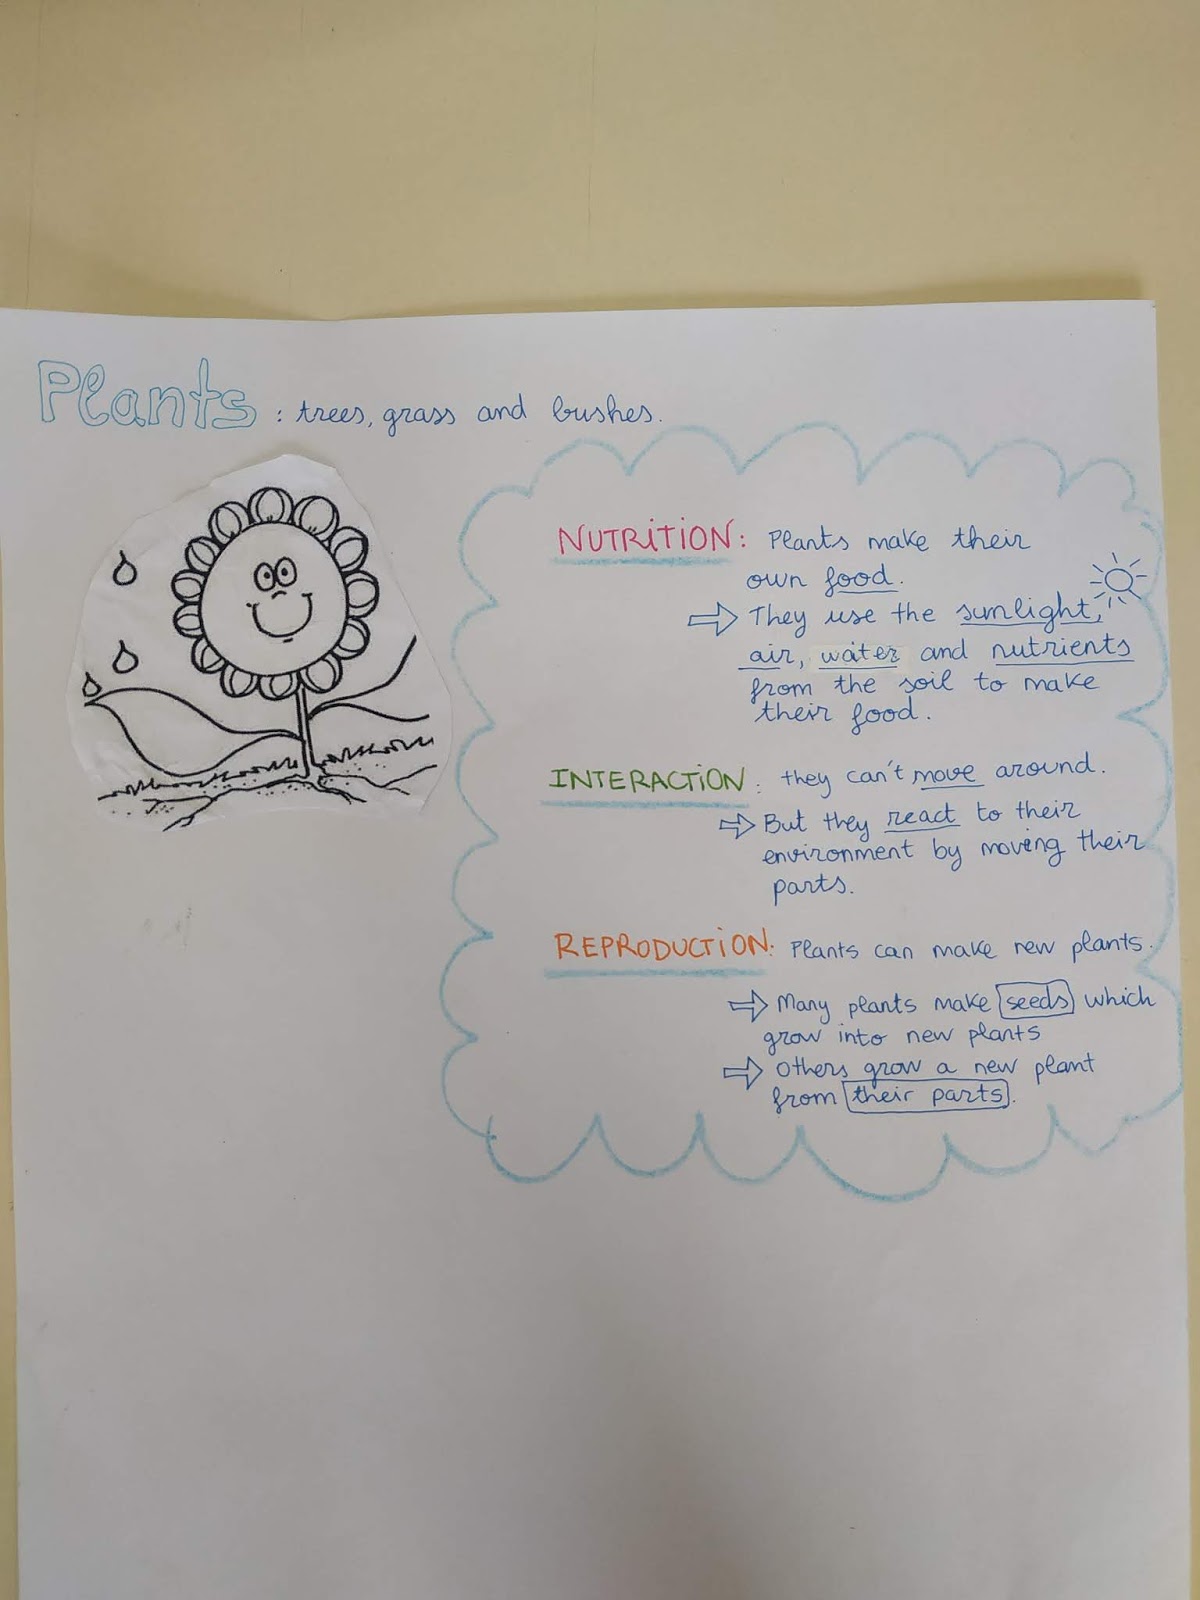 Plants : trees, grass and bushes.
NUTRITION: Plants make their
own food.
⇨ They use the sunlight,
air, water and nutrients
from the soil to make
their food.
INTERACTION: they can't move around.
⇨ But they react to their
environment by moving their
parts.
REPRODUCTION: Plants can make new plants.
⇨ Many plants make seeds which
grow into new plants
⇨ Others grow a new plant
from their parts.